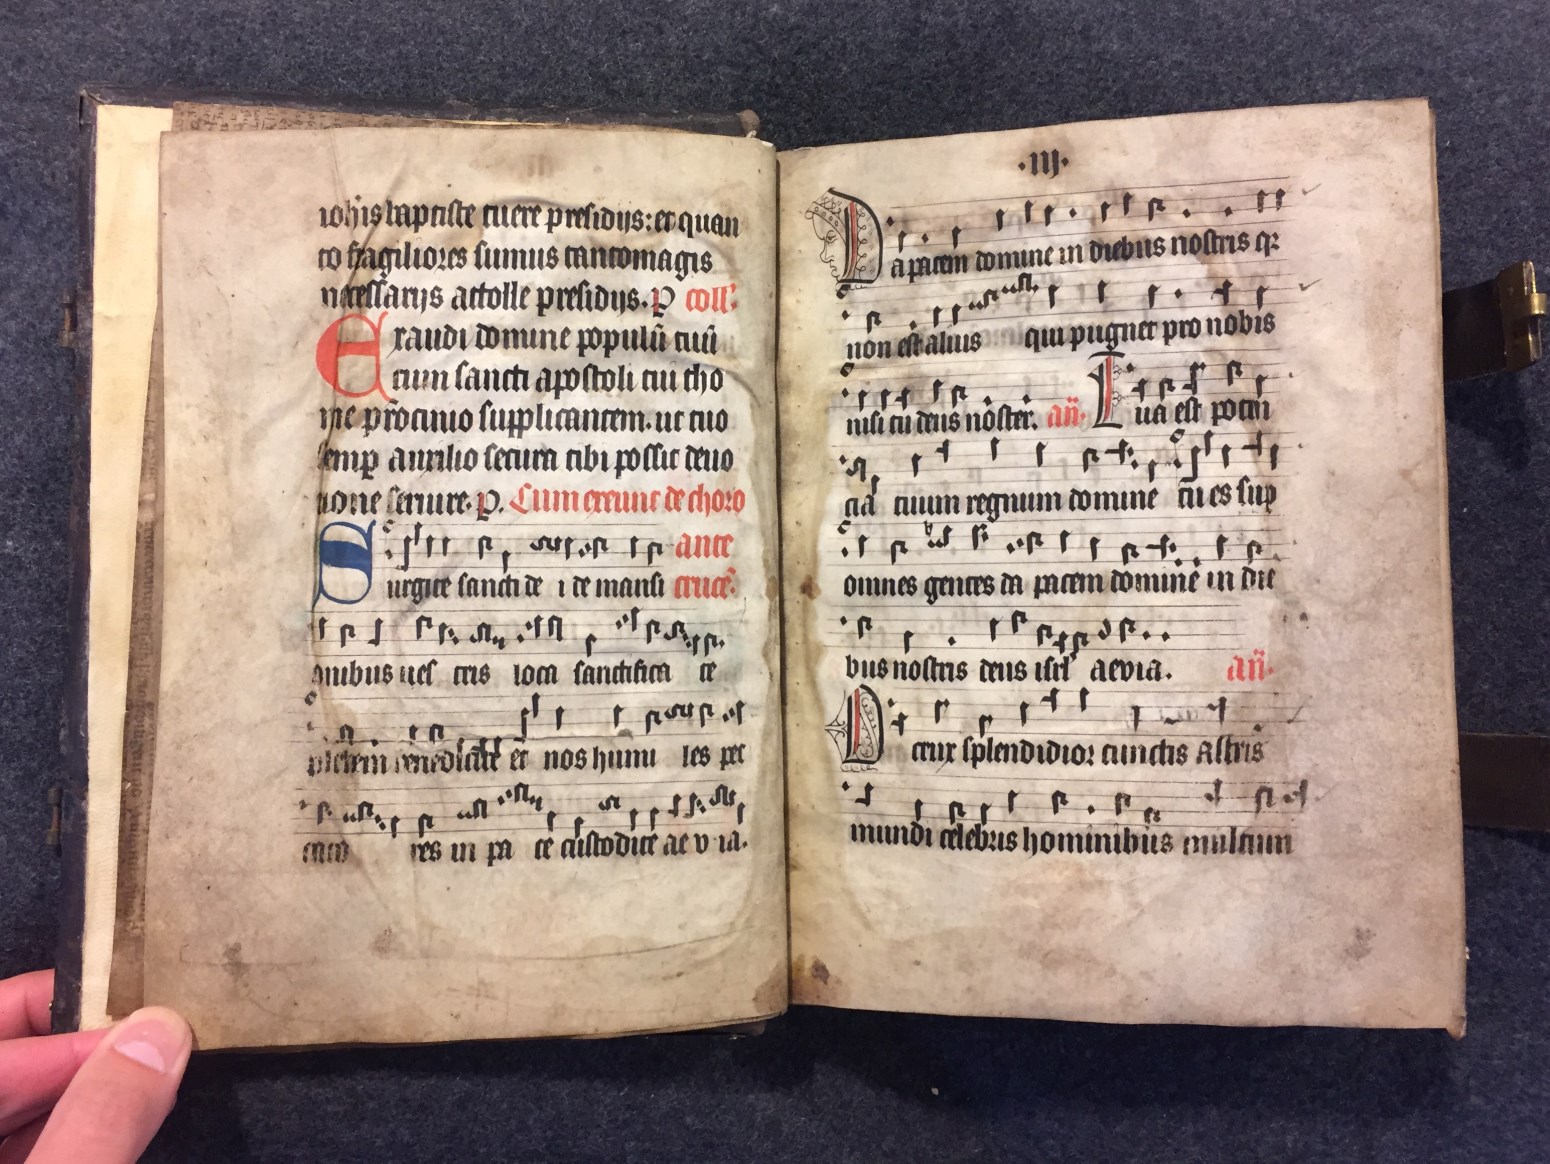 iohis baptiste tuere presidijs: et quan
to fragiliores sumus tantomagis
necessarijs attolle presidijs. P coll'
Exaudi domine populū tuū
cum sancti apostoli tui tho
me prōcinio supplicantem. ut tuo
semp auxilio secura tibi possit deuo
tione seruire. P. Cum exeunt de choro
Surgite sancti de i de mansi ante crucē.
onibus ues tris loca sanctifica te
plebem benedicite et nos humi les pec
cato res in pa ce custodite ae v ia.
·III·
Da pacem domine in diebus nostris qr
non est alius qui pugnet pro nobis
nisi tu deus noster. añ. Tua est poten
cia tuum regnum domine tu es sup
omnes gentes da pacem domine in die
bus nostris deus isrl' aevia. añ.
O crux splendidior cunctis Astris
mundi celebris hominibus multum